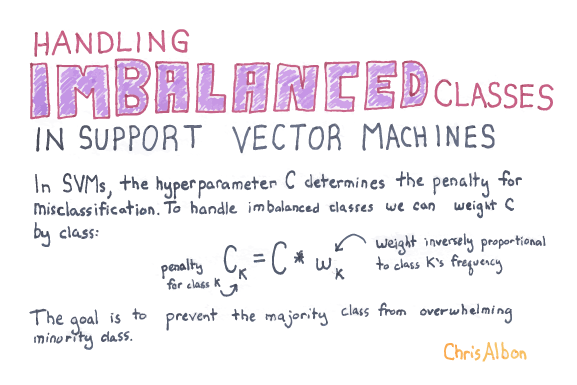 HANDLING
IMBALANCED CLASSES
IN SUPPORT VECTOR MACHINES
In SVMs, the hyperparameter C determines the penalty for
misclassification. To handle imbalanced classes we can weight C
by class:
penalty
for class K
C_K = C * w_K
weight inversely proportional
to class K's frequency
The goal is to prevent the majority class from overwhelming
minority class.
Chris Albon